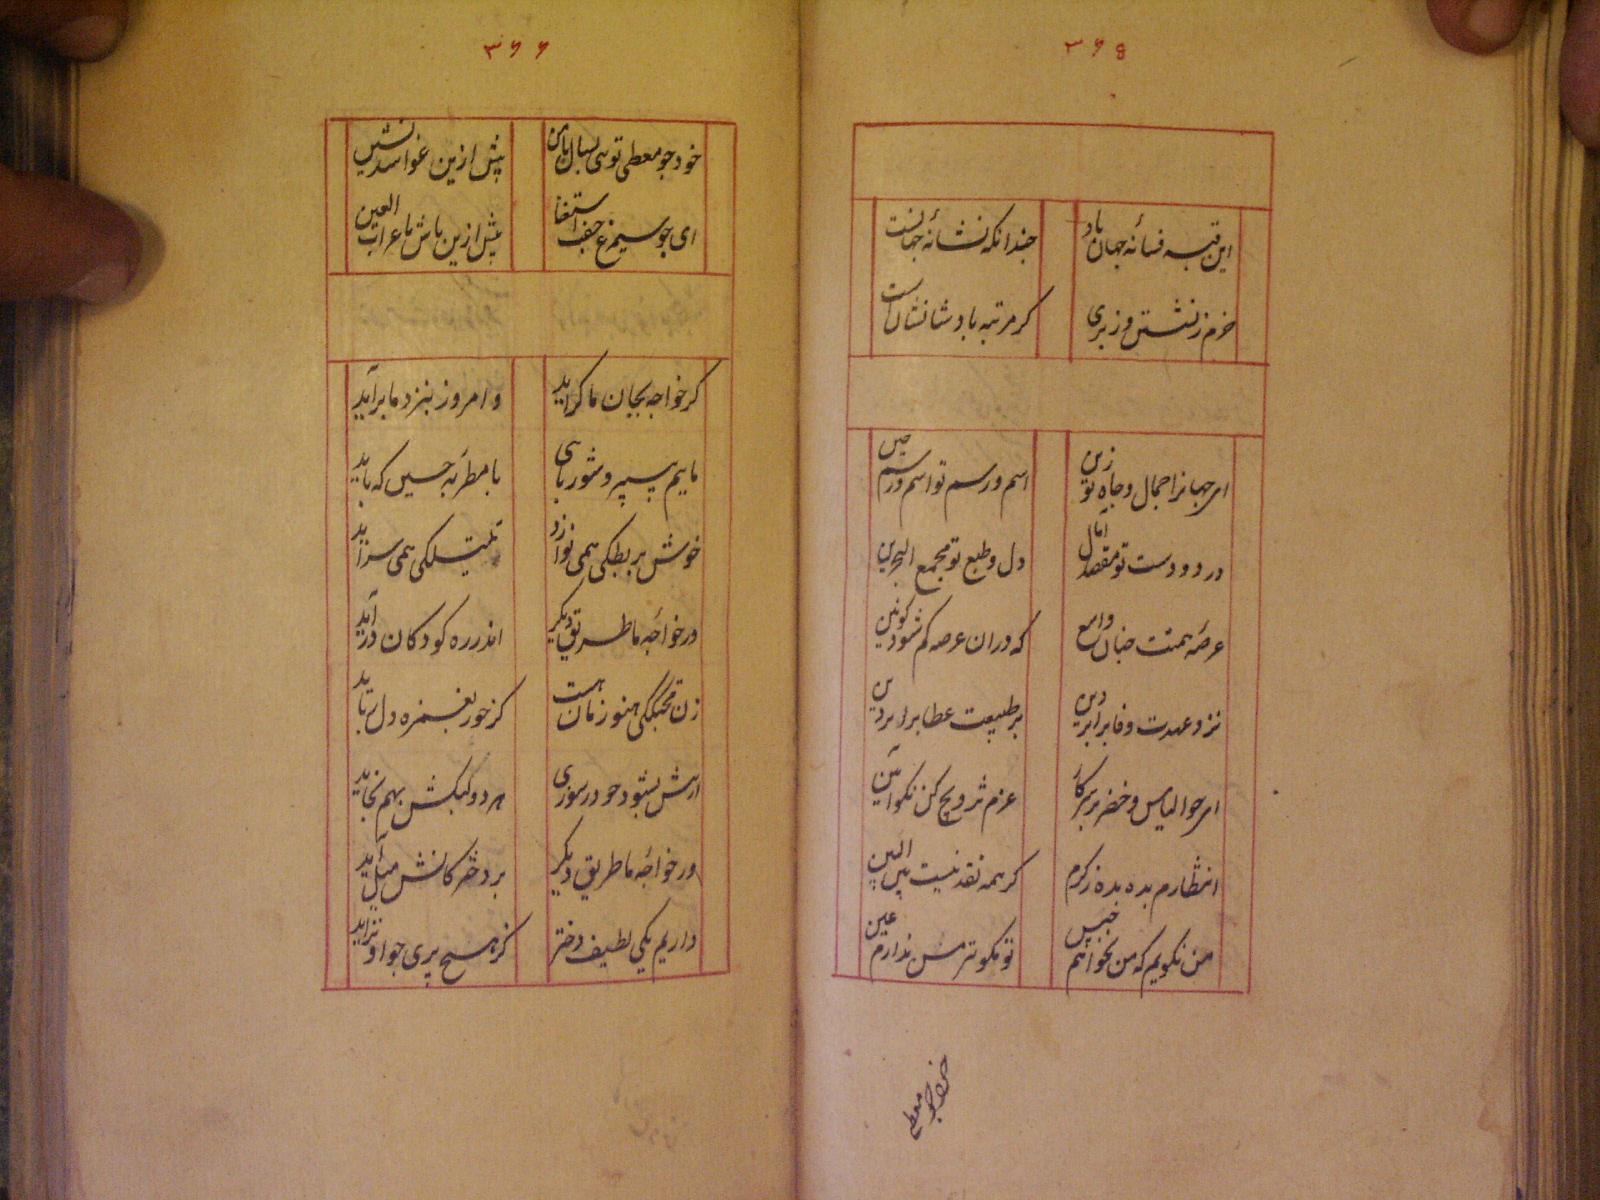 ۳۶۵
این قبه فسانه جهان باد
چندانکه نشانه جهانست
خرم ز نشستن وزیری
کز مرتبه پادشا نشانست
ای جهانرا جمال و جاه تو زین
اسم و رسم تو اسم و رسم حسین
در دو دست تو مقصد آمال
دل و طبع تو مجمع البحرین
عرصه همتت چنان واسع
که دران عرصه گم شود کونین
نزد عهدت وفا برابر دین
بر طبیعت عطا برابر دین
ای چو الیاس و خضر بر سر کار
عزم ترویج کن نکو آئین
انتظارم مده بده ز کرم
گر همه نقد نیست بین البین
من نگویم که من بخوانم
تو نکوتر من ندارم عین
خود چو معطی
۳۶۶
خود چو معطی توئی
پیش ازین
ای چو سیمرغ جفت استغنا
بیش ازین باش با غراب البین
گر خواجه بجان ما گراید
و امروز بنزد ما برآید
مائیم سپید و شوربائی
با مطربه حسین که باید
خوش بربطکی همی نوازد
تلتیلکی همی سراید
ور خواجه ما طریق دیگر
اندر ره کودکان درآید
زن قحبگکی هنوز مان هست
کز حور بغمزه دل رباید
ارش بشود
هر دو لبکش بهم نخاید
ور خواجه ما طریق دیگر
بر دخترکانش میل آید
داریم یکی لطیف دختر
کز هیچ پری چو او نزاید